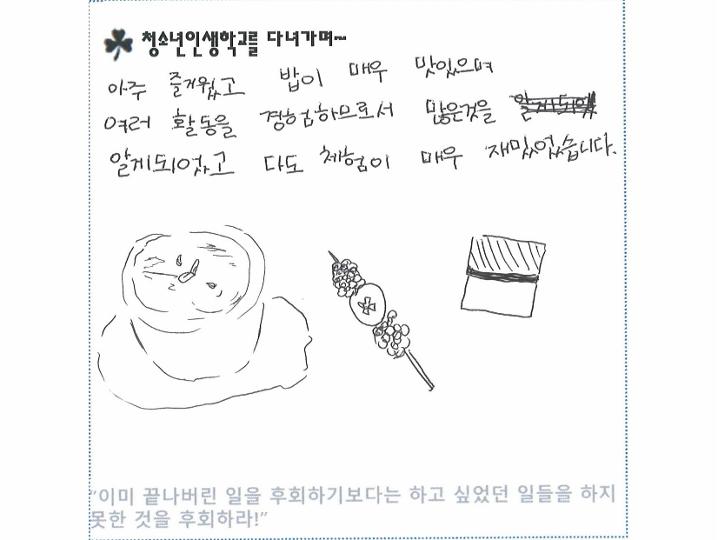 청소년인생학교를 다녀가며~
아주 즐거웠고 밥이 매우 맛있으며
여러 활동을 경험하므로서 많은것을 알게되었
알게되었고 다도 체험이 매우 재밌었습니다.
"이미 끝나버린 일을 후회하기보다는 하고 싶었던 일들을 하지
못한 것을 후회하라!"